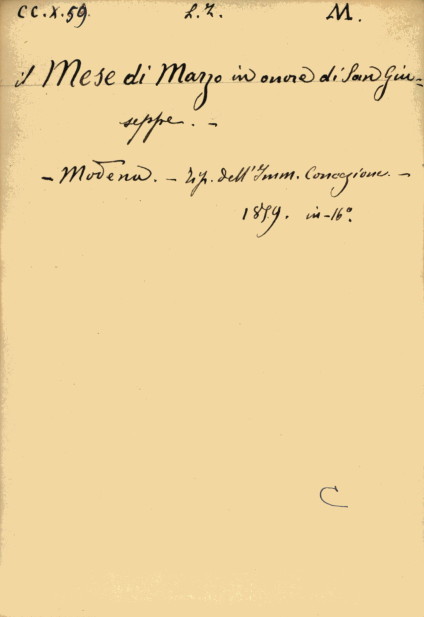 CC.X.59. L.Z. M.
il Mese di Marzo in onore di San Giu=
seppe. –
– Modena. – Tip. dell'Imm. Concezione. –
1879. in-16°.
C